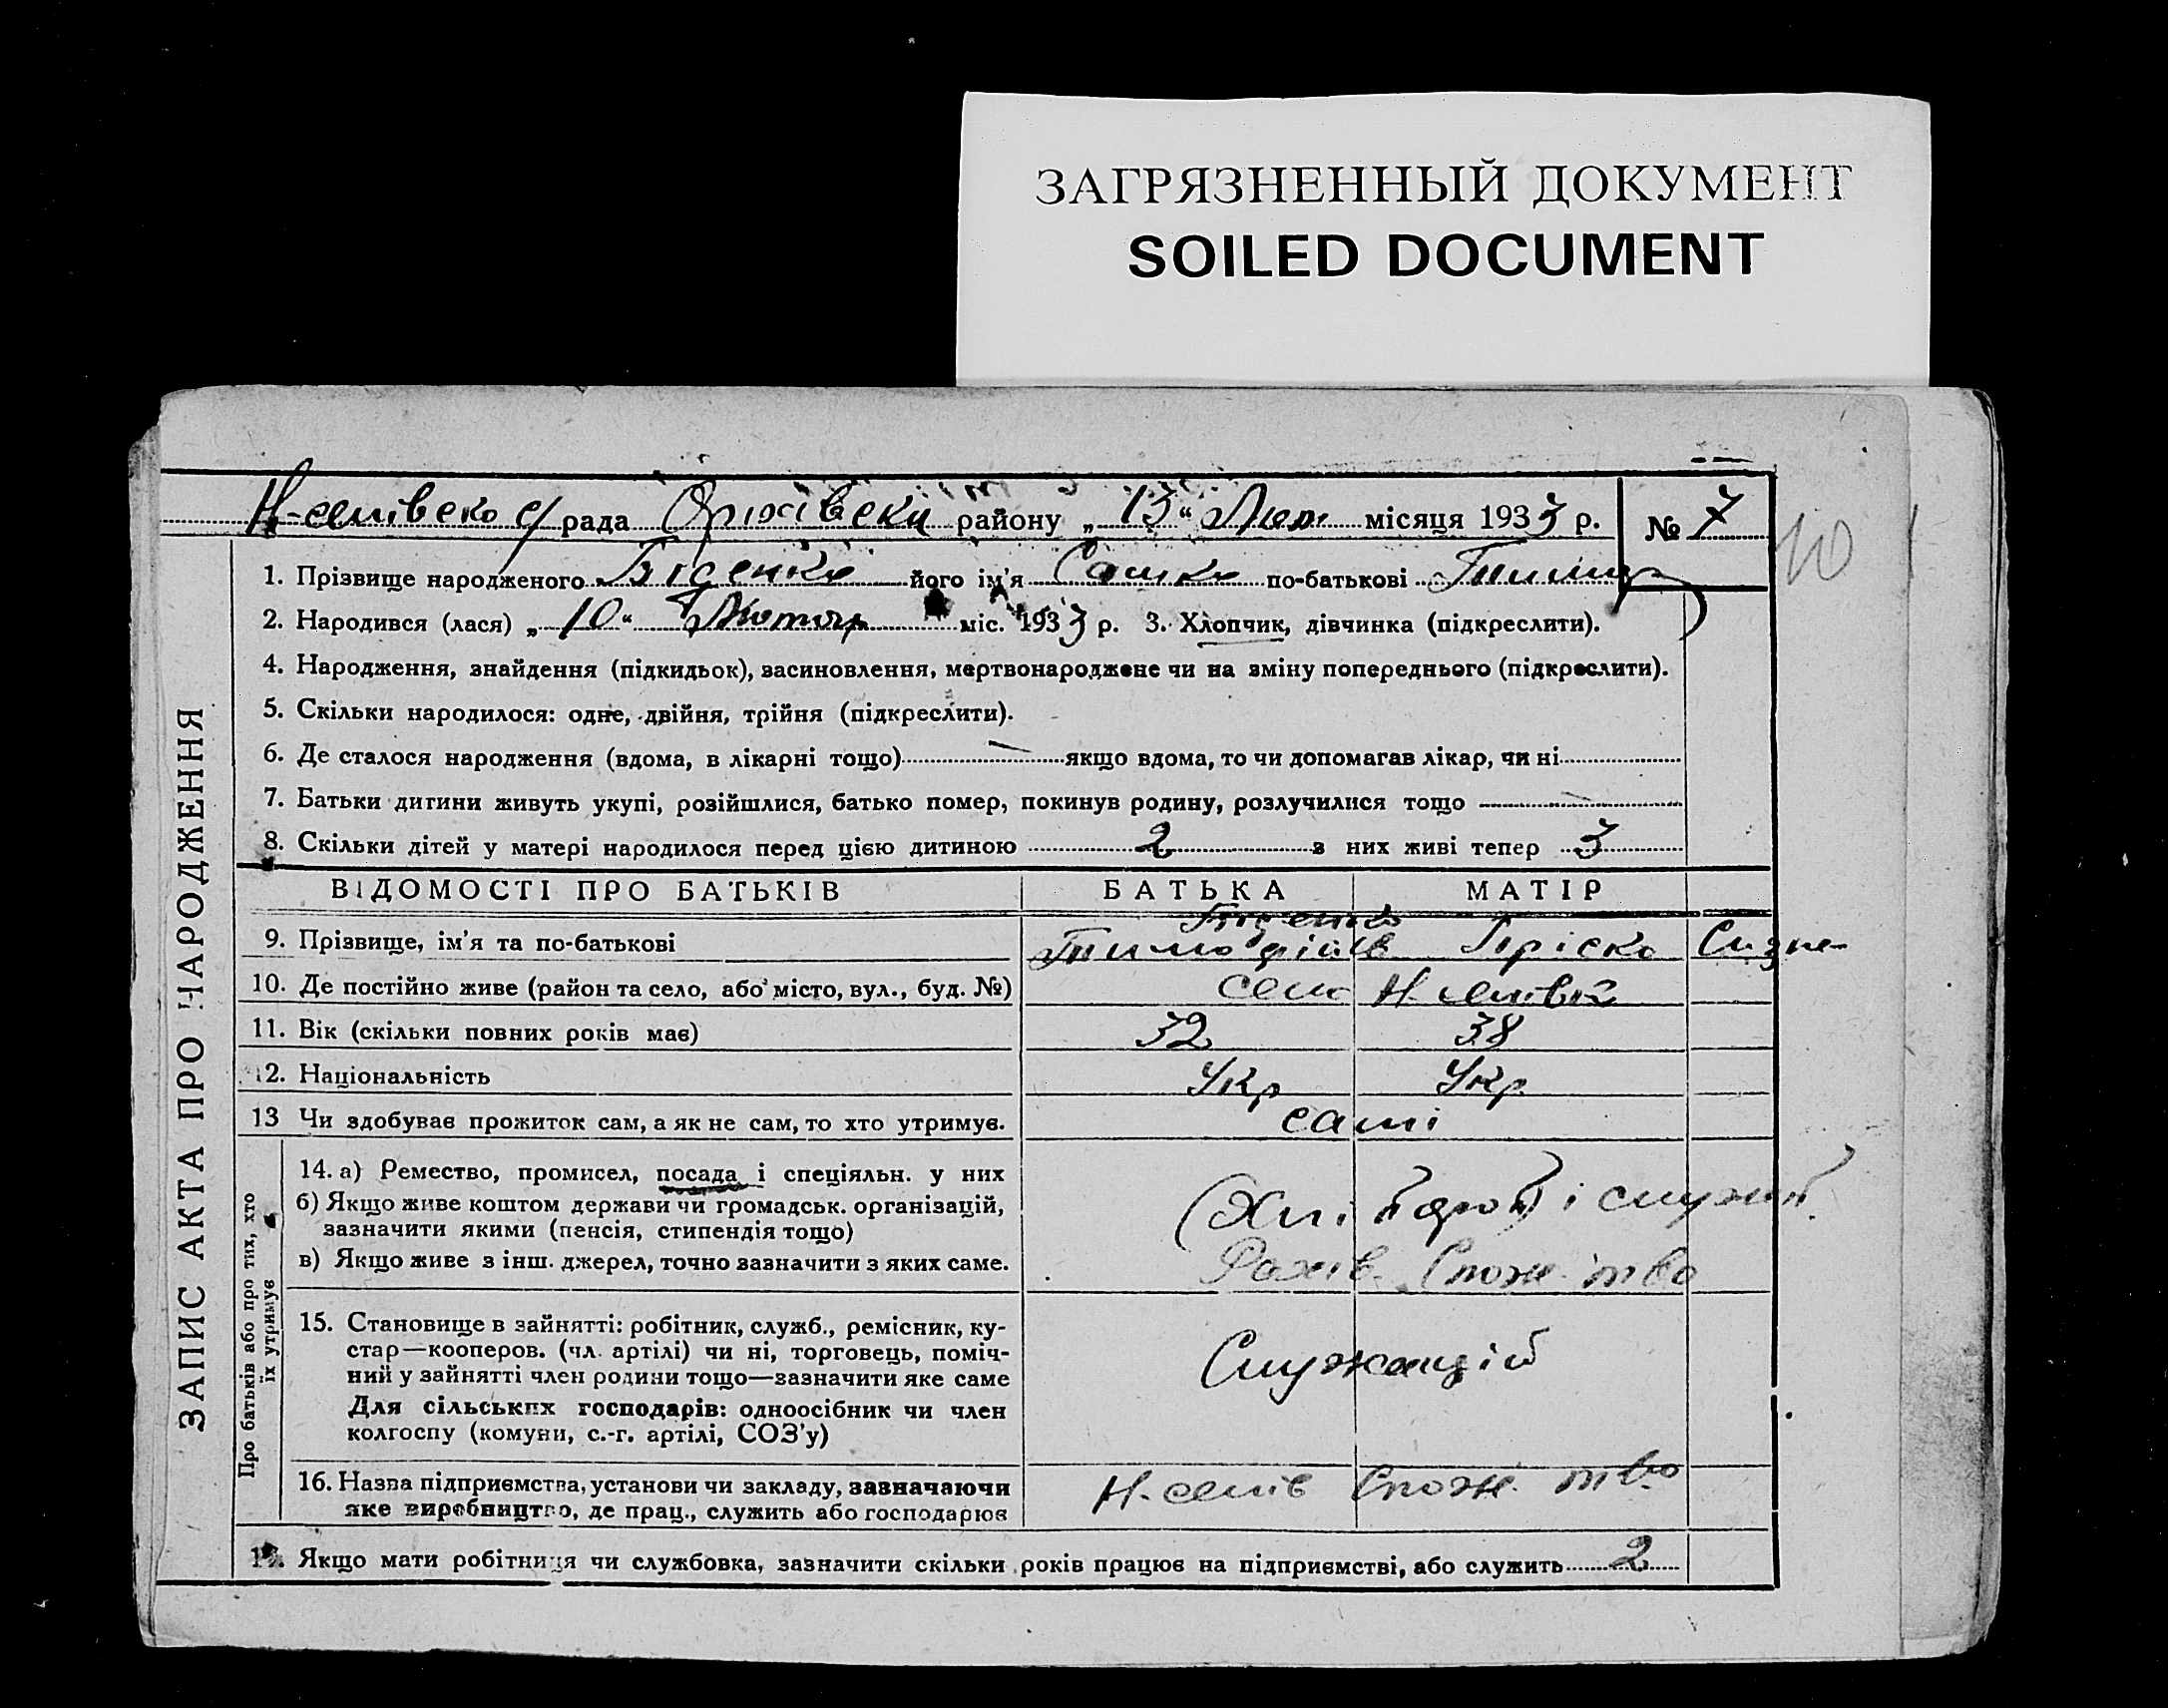 ЗАГРЯЗНЕННЫЙ ДОКУМЕНТ
SOILED DOCUMENT
рада району „ 13 “ місяця 1933 р. № 7
10
ЗАПИС АКТА ПРО НАРОДЖЕННЯ
1. Прізвище народженого його ім'я Сашко по-батькові
2. Народився (лася) „ 10 “ Лютого міс. 1933 р. 3. Хлопчик, дівчинка (підкреслити).
4. Народження, знайдення (підкидьок), засиновлення, мертвонароджене чи на зміну попереднього (підкреслити).
5. Скільки народилося: одне, двійня, трійня (підкреслити).
6. Де сталося народження (вдома, в лікарні тощо) якщо вдома, то чи допомагав лікар, чи ні
7. Батьки дитини живуть укупі, розійшлися, батько помер, покинув родину, розлучилися тощо
8. Скільки дітей у матері народилося перед цією дитиною 2 з них живі тепер 3
ВІДОМОСТІ ПРО БАТЬКІВ БАТЬКА МАТІР
9. Прізвище, ім'я та по-батькові Пріска
10. Де постійно живе (район та село, або місто, вул., буд. №) село
11. Вік (скільки повних років має) 32 38
12. Національність Укр Укр.
13 Чи здобуває прожиток сам, а як не сам, то хто утримує. самі
Про батьків або про тих, хто
їх утримує
14. а) Ремество, промисел, посада і спеціяльн. у них
б) Якщо живе коштом держави чи громадськ. організацій,
зазначити якими (пенсія, стипендія тощо)
в) Якщо живе з інш. джерел, точно зазначити з яких саме.
Спож. т-во
15. Становище в зайнятті: робітник, служб., ремісник, ку-
стар—кооперов. (чл. артілі) чи ні, торговець, поміч-
ний у зайнятті член родини тощо—зазначити яке саме
Служащій
Для сільських господарів: одноосібник чи член
колгоспу (комуни, с.-г. артілі, СОЗ'у)
16. Назва підприємства, установи чи закладу, зазначаючи
яке виробництво, де прац., служить або господарює
Н-селів Спож. т-во
17. Якщо мати робітниця чи службовка, зазначити скільки років працює на підприємстві, або служить 2